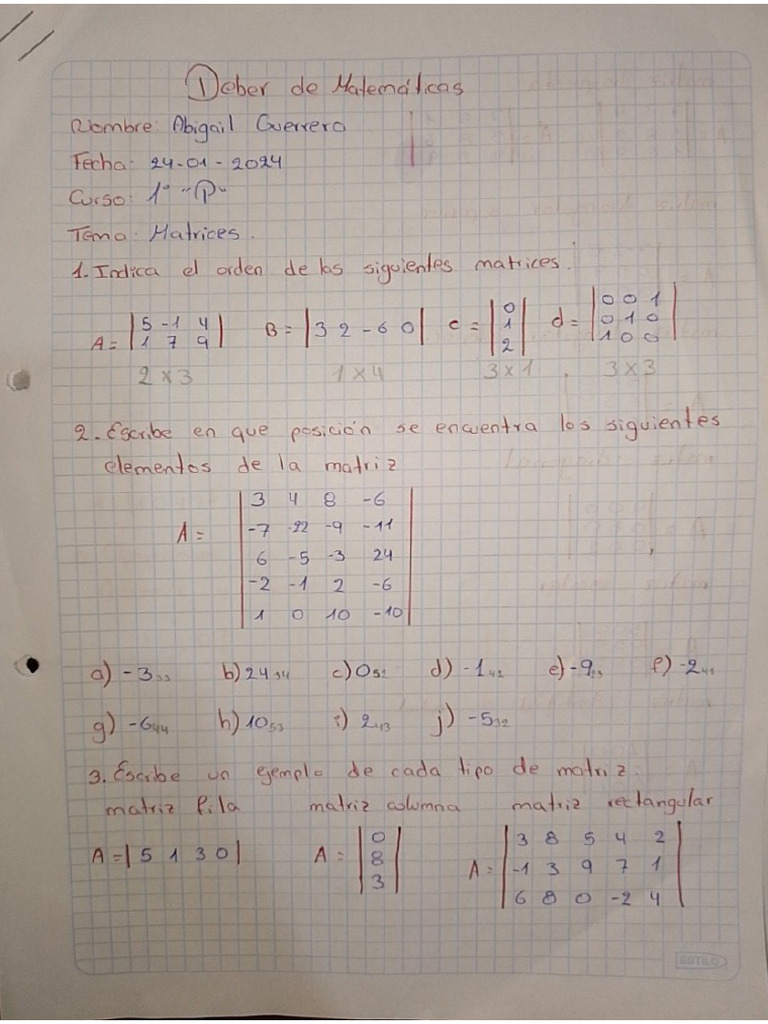 1 Deber de Matemáticas
Nombre: Abigail Guerrero
Fecha: 24-01-2024
Curso: 1° "P"
Tema: Matrices.
1. Indica el orden de las siguientes matrices.
A = |5 -1 4| B = |3 2 -6 0| c = |0| d = |0 0 1|
|1 7 9| |1| |0 1 0|
|2| |1 0 0|
2x3 1x4 3x1 . 3x3
2. Escribe en que posición se encuentra los siguientes
elementos de la matriz
|3 4 8 -6|
A = |-7 -22 -9 -11|
|6 -5 -3 24|
|-2 -1 2 -6|
|1 0 10 -10|
a) -3₃₃ b) 24₃₄ c) 0₅₂ d) -1₄₂ e) -9₂₃ f) -2₄₁
g) -6₄₄ h) 10₅₃ i) 2₄₃ j) -5₃₂
3. Escribe un ejemplo de cada tipo de matriz.
matriz fila matriz columna matriz rectangular
A = |5 1 3 0| A = |0| A = |3 8 5 4 2|
|8| |-1 3 9 7 1|
|3| |6 8 0 -2 4|
ESTILO